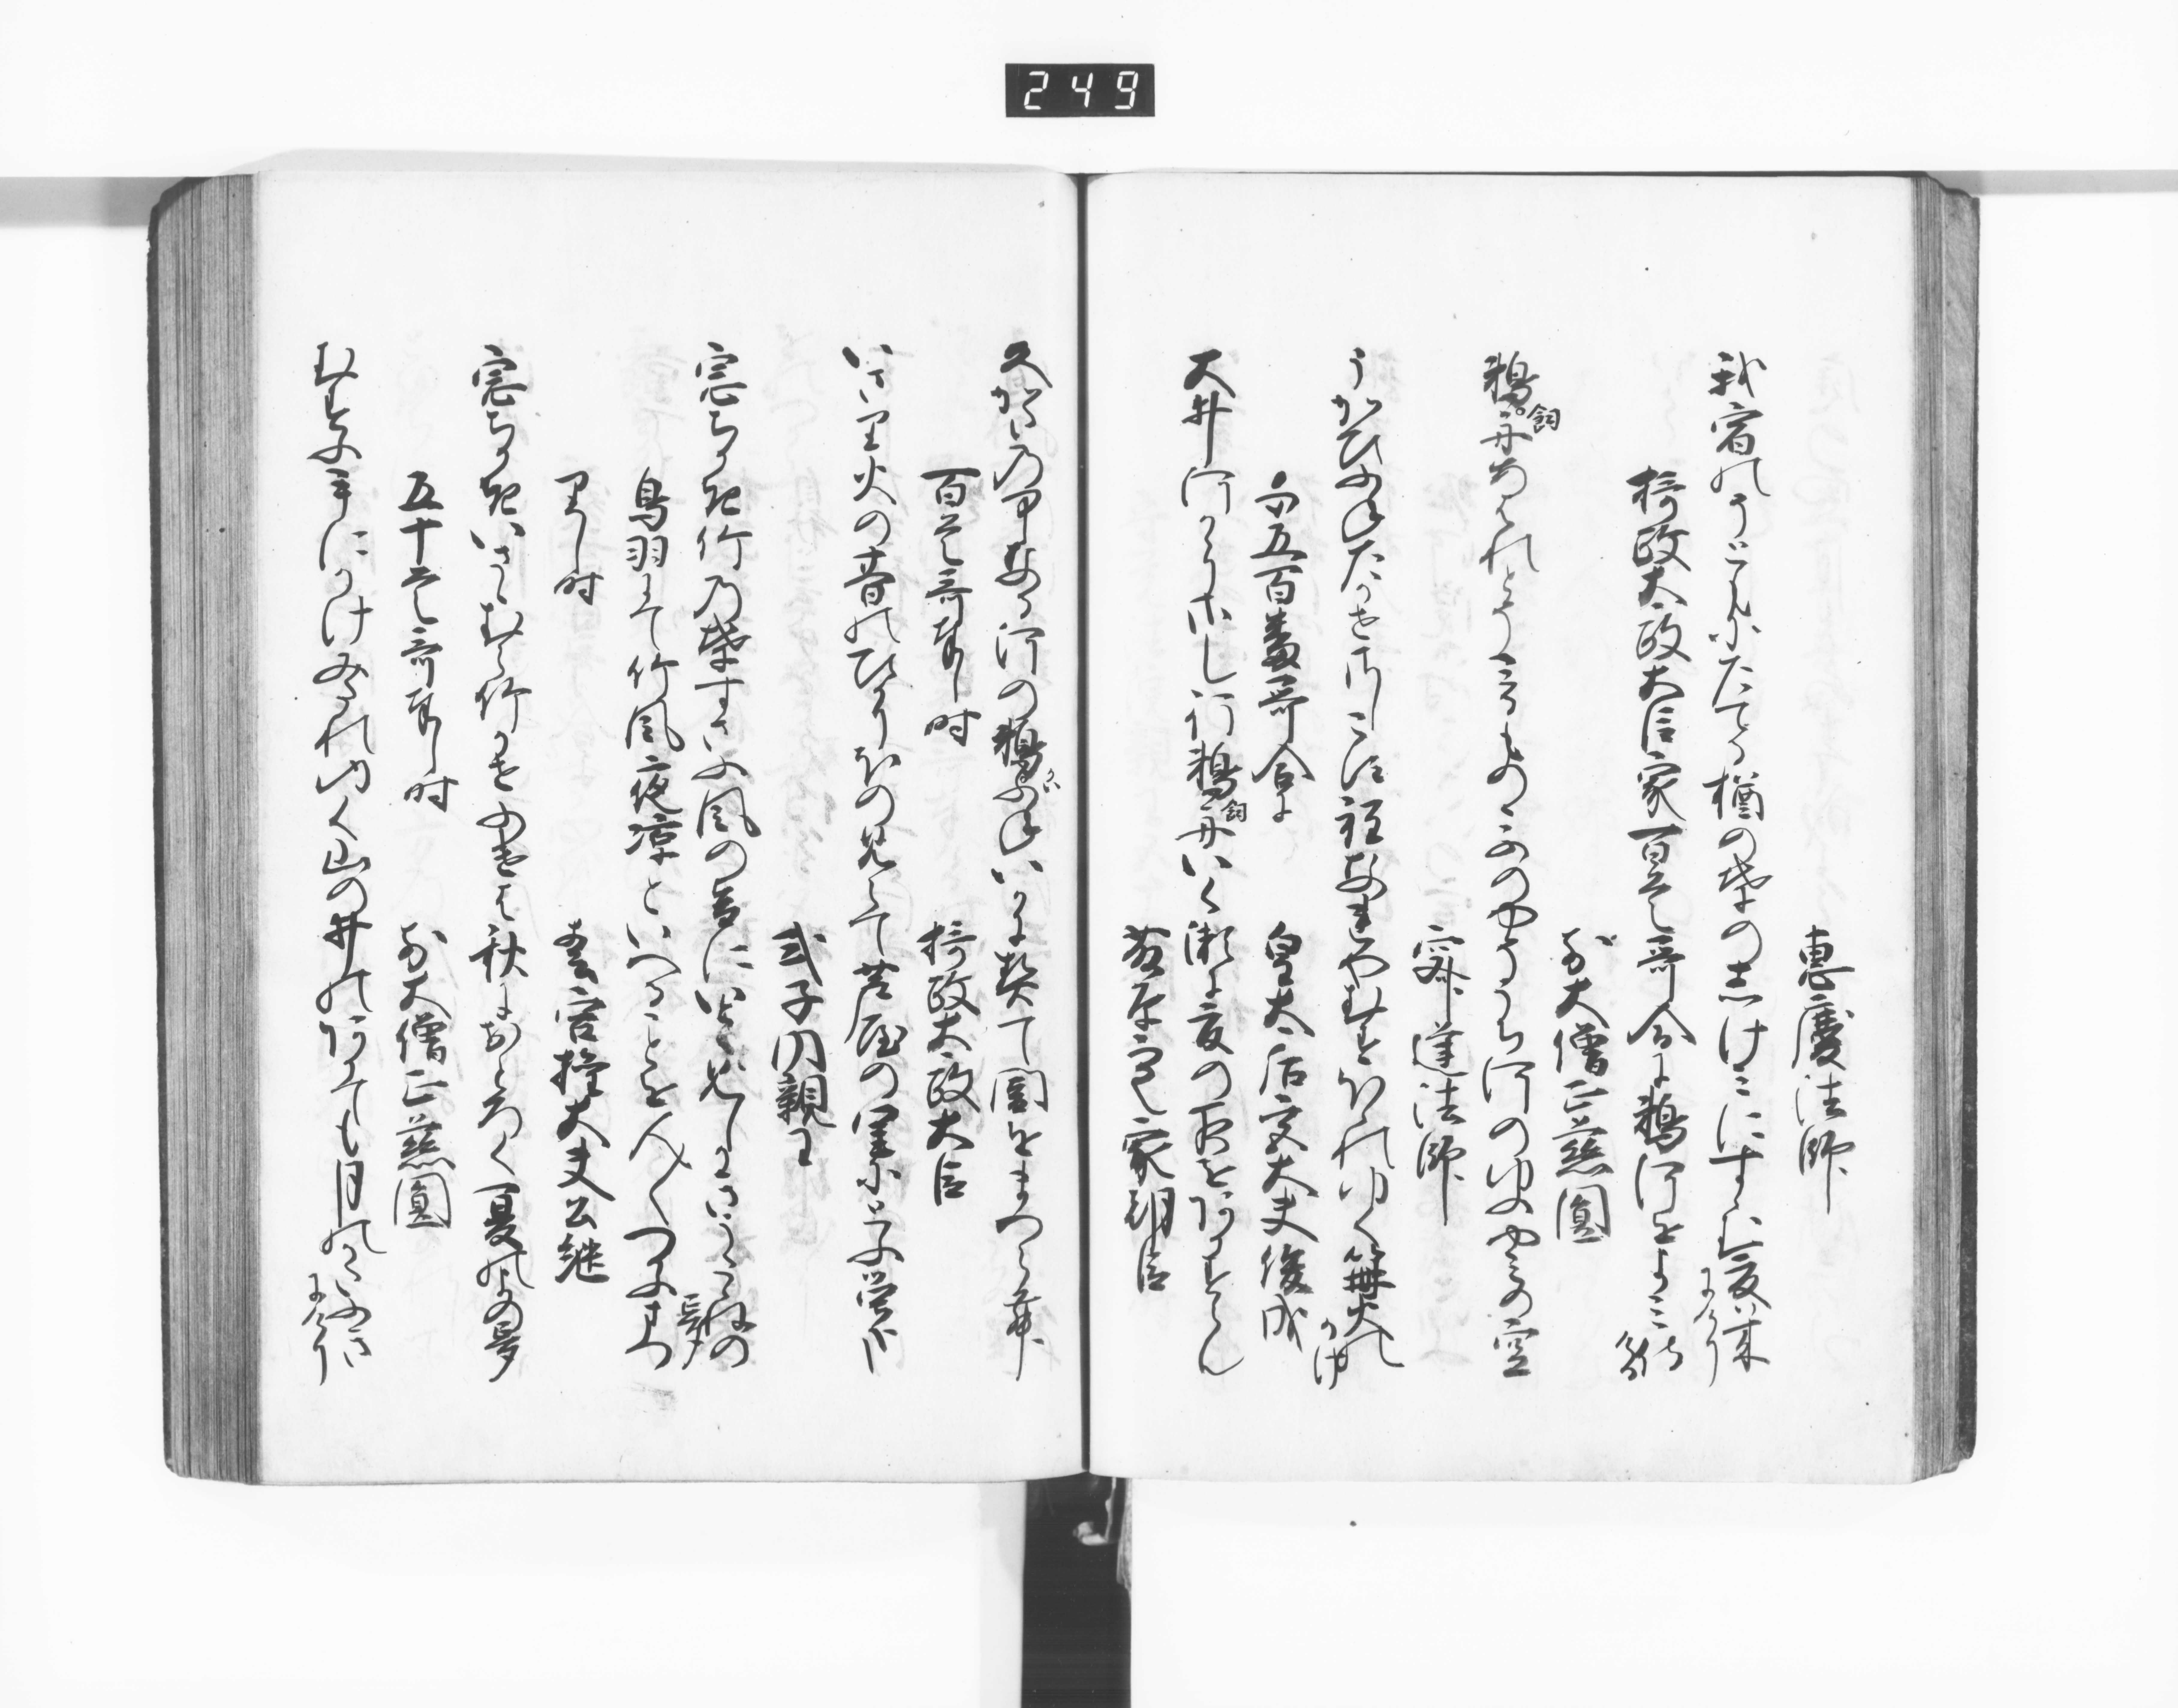 恵慶法師
我宿のそともにたてる楢の葉のしけみにすゝむ夏は来
にけり
摂政太政大臣家百首哥合に鵜河をよみ侍
ける
前大僧正慈圓
鵜飼舟あはれとそみるものゝふのやそうち河のゆふやみの空
寂蓮法師
うかひふねたかせさしこす程なれやむすほゝれゆく篝火の
かけ
千五百番哥合に
皇太后宮大夫俊成
大井河かゝりさし行鵜飼舟いく瀬に夏の夜をあかすらん
藤原定家朝臣
久かたの中なる河の鵜かひふねいかに契て闇をまつらん
百首哥奉し時
摂政太政大臣
いさり火の昔のひかりほの見えて芦屋の里にとふ蛍かな
式子内親王
窓ちかき竹の葉すさふ風の音にいとゝみしかきうたゝねの
夢
鳥羽にて竹風夜凉といへることを人〳〵つかうまつ
りし時
春宮権大夫公継
窓ちかきいさゝむら竹風ふけは秋におとろく夏の夜の夢
五十首哥奉し時
前大僧正慈圓
むすふ手にかけみたれゆく山の井のあかても月のかたふき
にけり